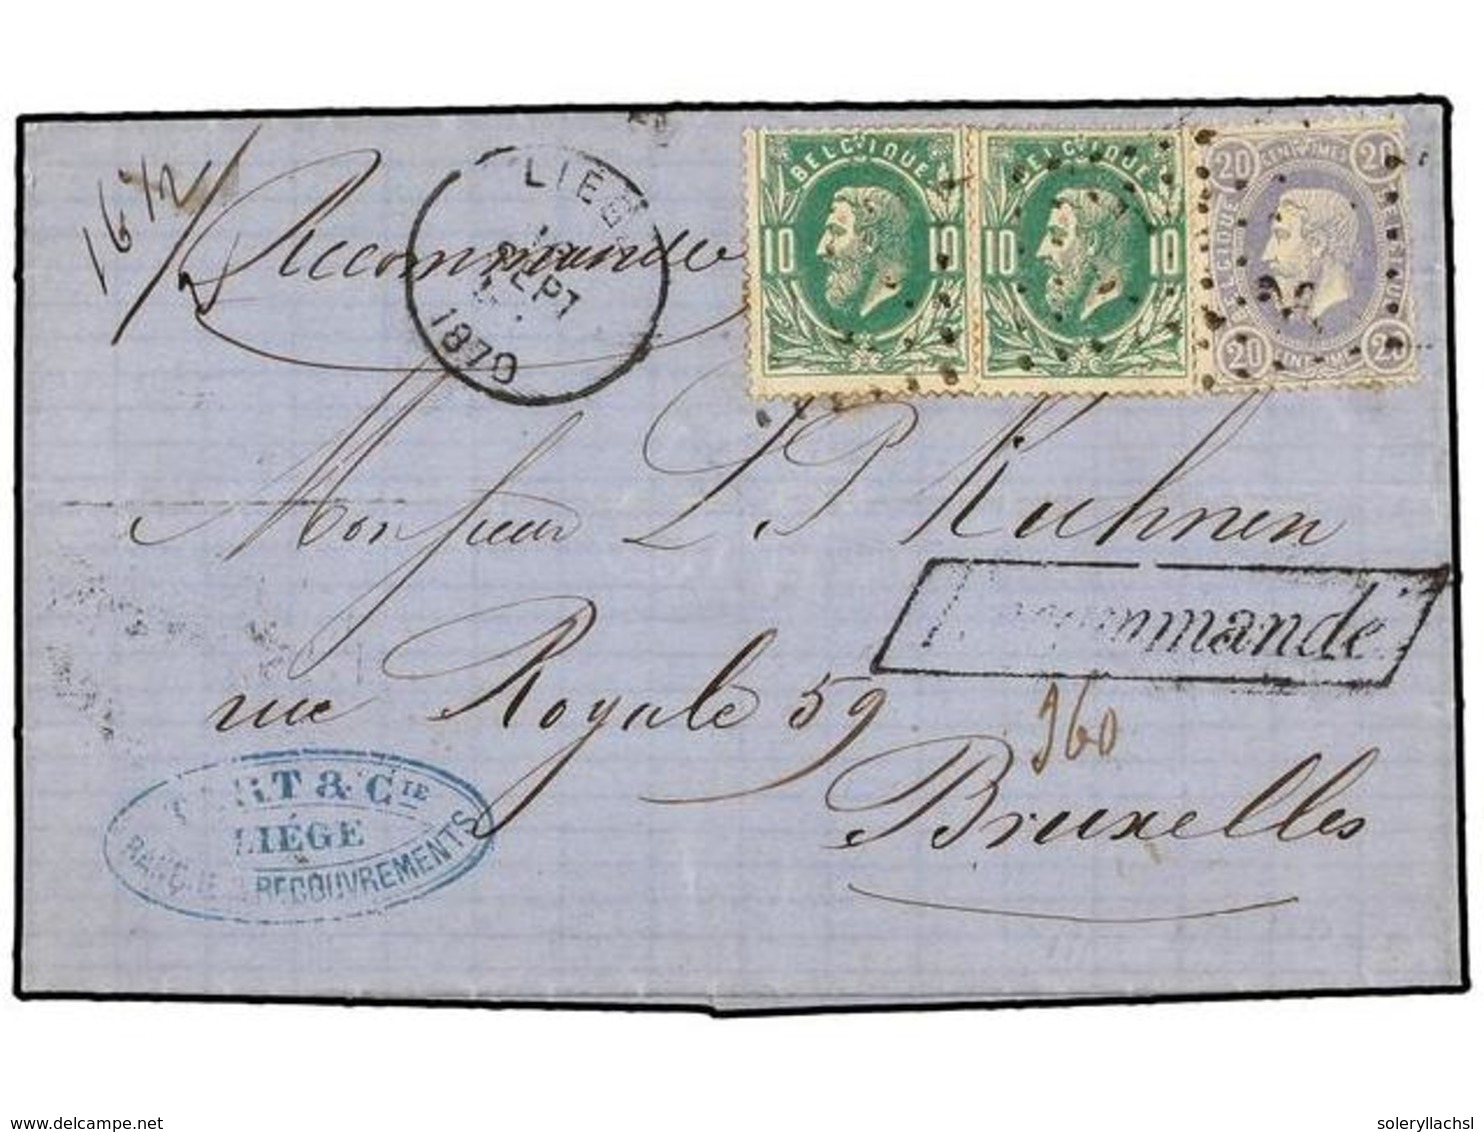 16 1/2
Recommandée
LIÉGE
SEPT
1870
BELGIQUE
10 10
BELGIQUE
10 10
20 CENTIMES 20
BELGIQUE
20 CENTIMES 20
Monsieur L. P. Kuhnen
Recommandé
rue Royale 59
960
Bruxelles
& CIE
LIÉGE
RECOUVREMENTS
www.delcampe.net
soleryllachsl